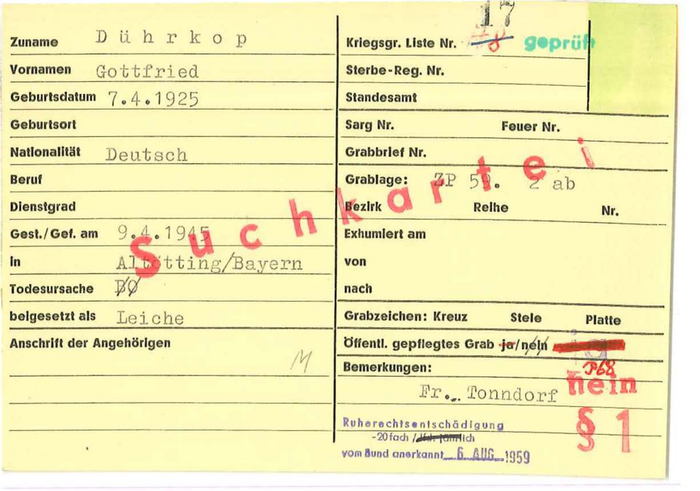 Zuname Dührkop
Vornamen Gottfried
Geburtsdatum 7.4.1925
Geburtsort
Nationalität Deutsch
Beruf
Dienstgrad
Gest./Gef. am 9.4.1945
in Altötting/Bayern
Todesursache
beigesetzt als Leiche
Anschrift der Angehörigen
M
17
Kriegsgr. Liste Nr. 8 geprüft
Sterbe-Reg. Nr.
Standesamt
Sarg Nr. Feuer Nr.
Grabbrief Nr.
Grablage: ZP 59. 2 ab
Bezirk Reihe Nr.
Exhumiert am
von
nach
Grabzeichen: Kreuz Stele Platte
Öffentl. gepflegtes Grab ja/nein
Bemerkungen: P68
nein
Fr. Tonndorf
§ 1
Ruherechtsentschädigung
-20fach /
vom Bund anerkannt 6. AUG. 1959
Suchkartei